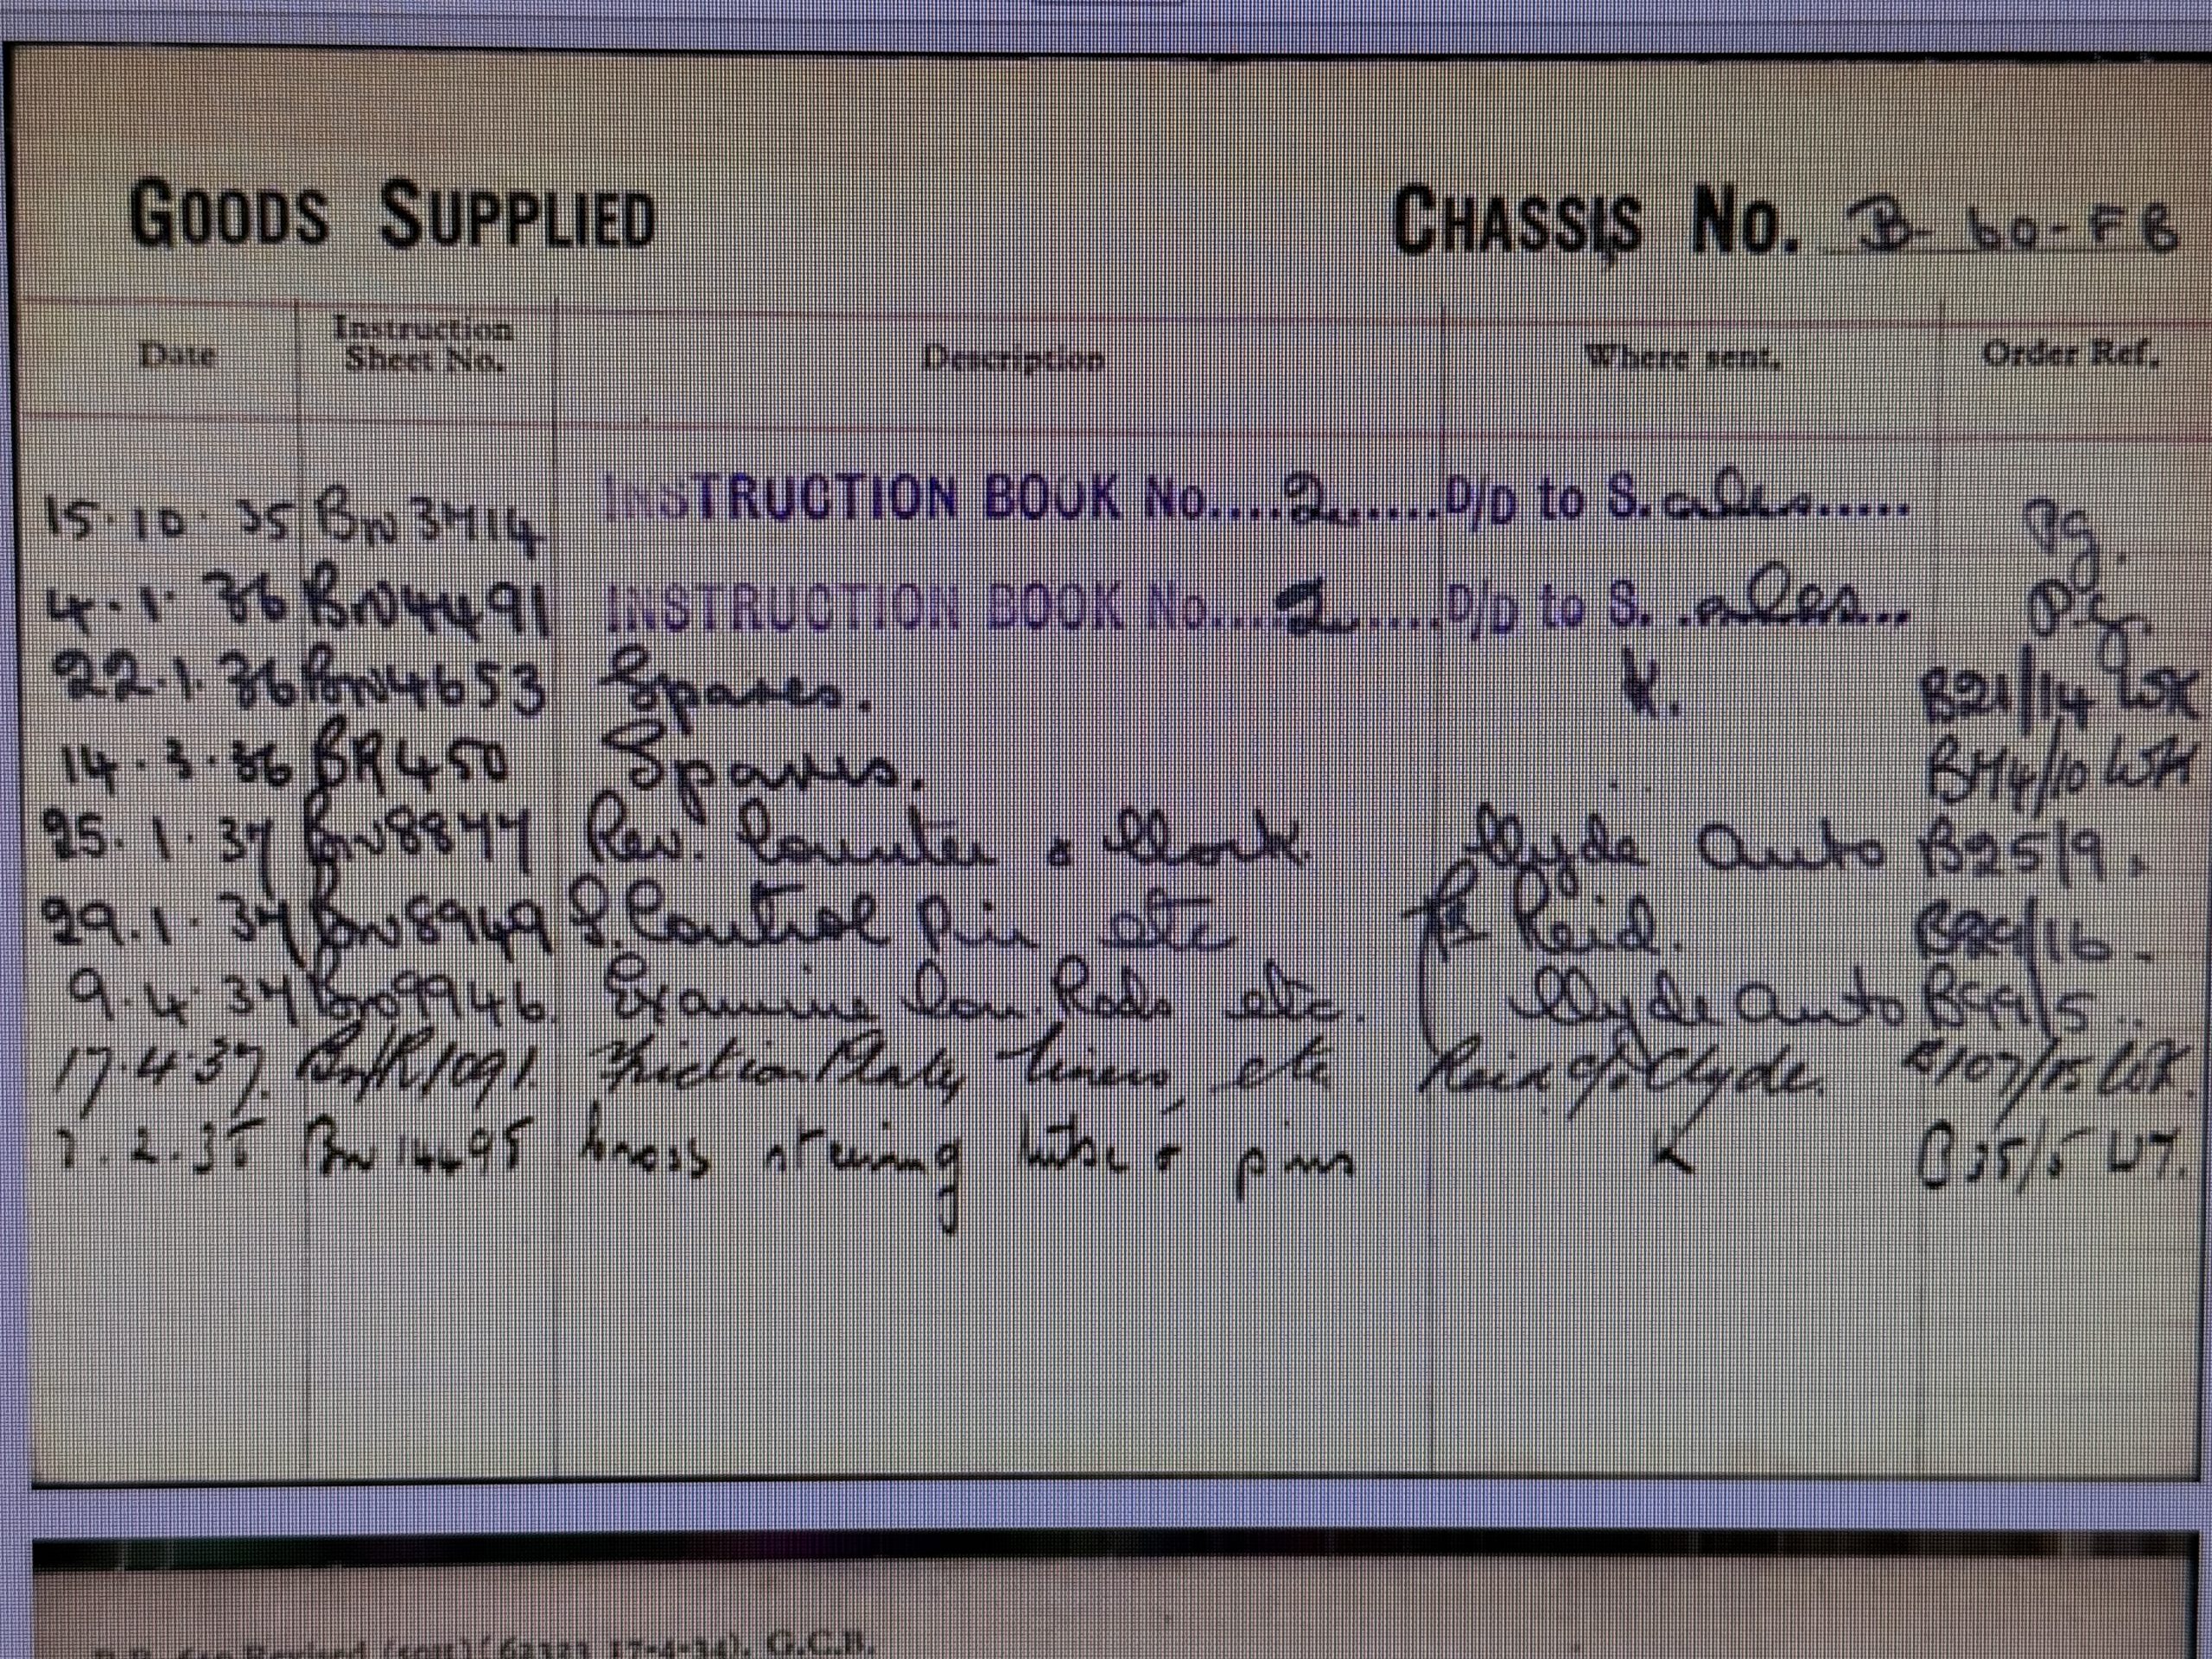 GOODS SUPPLIED CHASSIS No. B-60-FB
Date Instruction Sheet No. Description Where sent. Order Ref.
15.10.35 BN3414 INSTRUCTION BOOK No....2......D/D to S.ales.....
4.1.36 BN4491 INSTRUCTION BOOK No....2.....D/D to S..ales...
22.1.36 BN4653 Spares. K. B21/14 WK
14.3.36 BR450 Spares. B74/10 WK
25.1.37 BN8877 Rev. Counter & Clock. Clyde Auto B25/9.
29.1.37 BN8949 S. Control Pin etc Reid. /16
9.4.37 BN9946. Examine Con. Rods etc. Clyde Auto B99/5
17.4.37. BN/R1091. Friction Plate, liners, etc Clyde. B107/15 WK.
2.35 BN14495 Cross steering tube & pins K B35/5
Revised (50H) (62323 17-4-34). G.C.B.